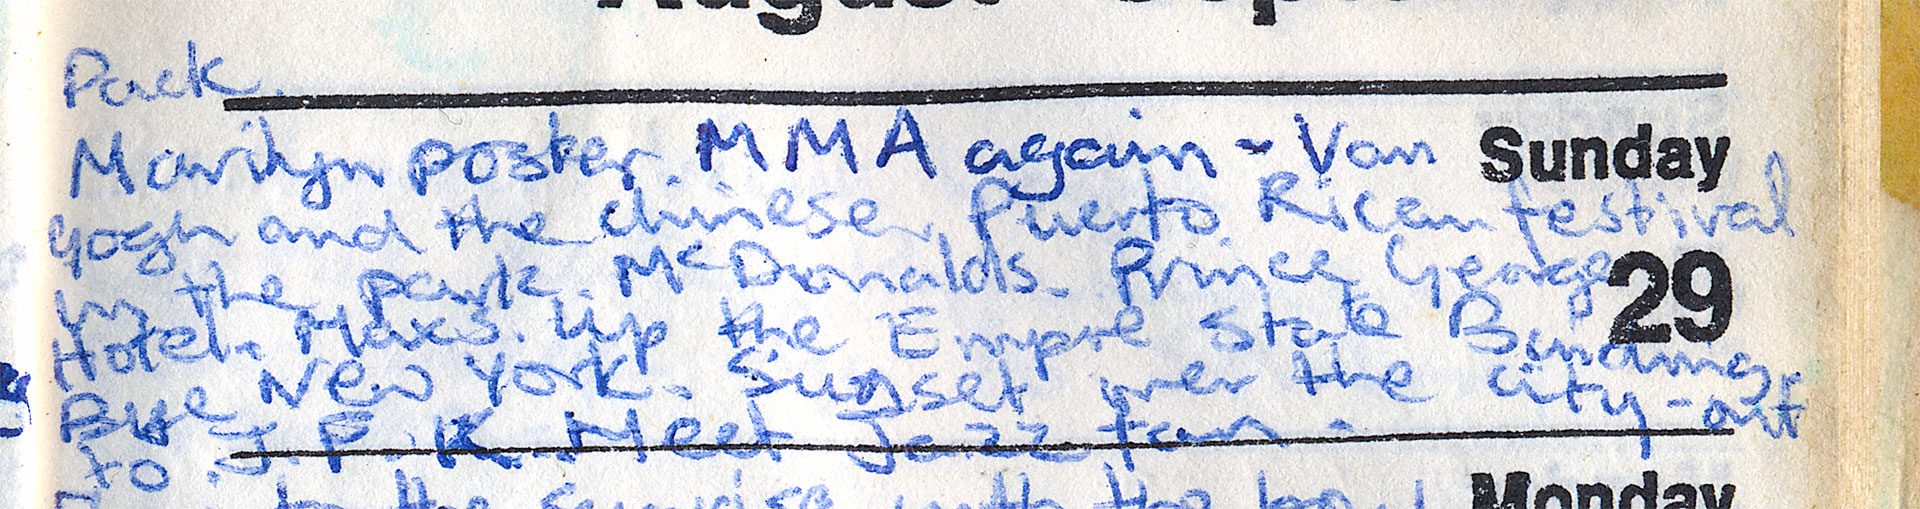 August Sept
Pack.
Marilyn poster. MMA again - Van Sunday
Gogh and the chinese. Puerto Rican festival
in the park. McDonalds. Prince George 29
Hotel. Maxs. Up the Empire State Building.
Bye New York. Sunset over the city - out
to J.F.K. Meet Jazz fan.
to the sunrise with the Monday